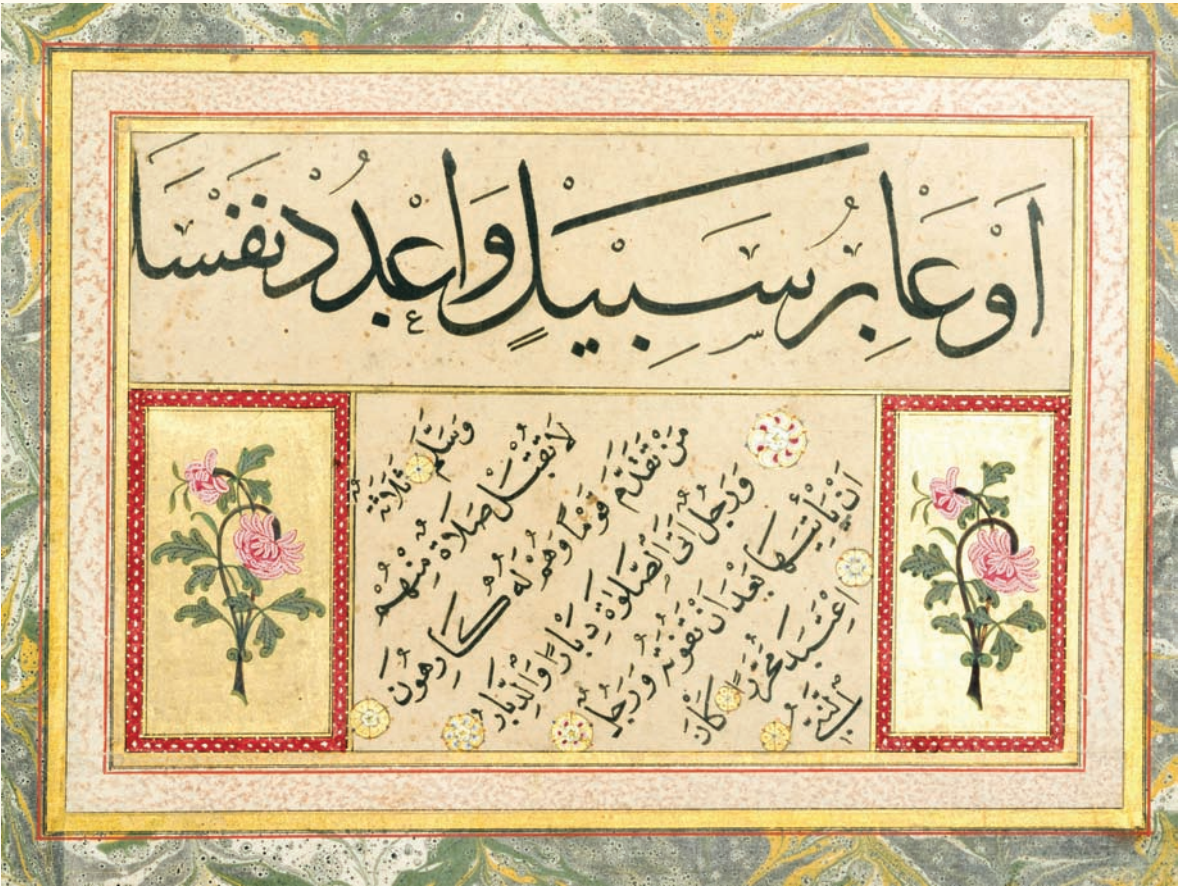 اَوْ عَابِرُ سَبِيْلٍ وَاعْدُدْ نَفْسَكَ
وَسَلَّمَ ثَلَاثَةٌ
لَا تُقْبَلُ صَلَاةٌ مِنْهُمْ
مَنْ تَقَدَّمَ قَوْمًا وَهُمْ لَهُ كَارِهُونَ
وَرَجُلٌ اَتَى الصَّلٰوةَ دِبَارًا وَالدِّبَارُ
اَنْ يَأْتِيَهَا بَعْدَ اَنْ تَفُوتَهُ وَرَجُلٌ
اِعْتَبَدَ مُحَرَّرًا كَانَ
النَّبِيُّ